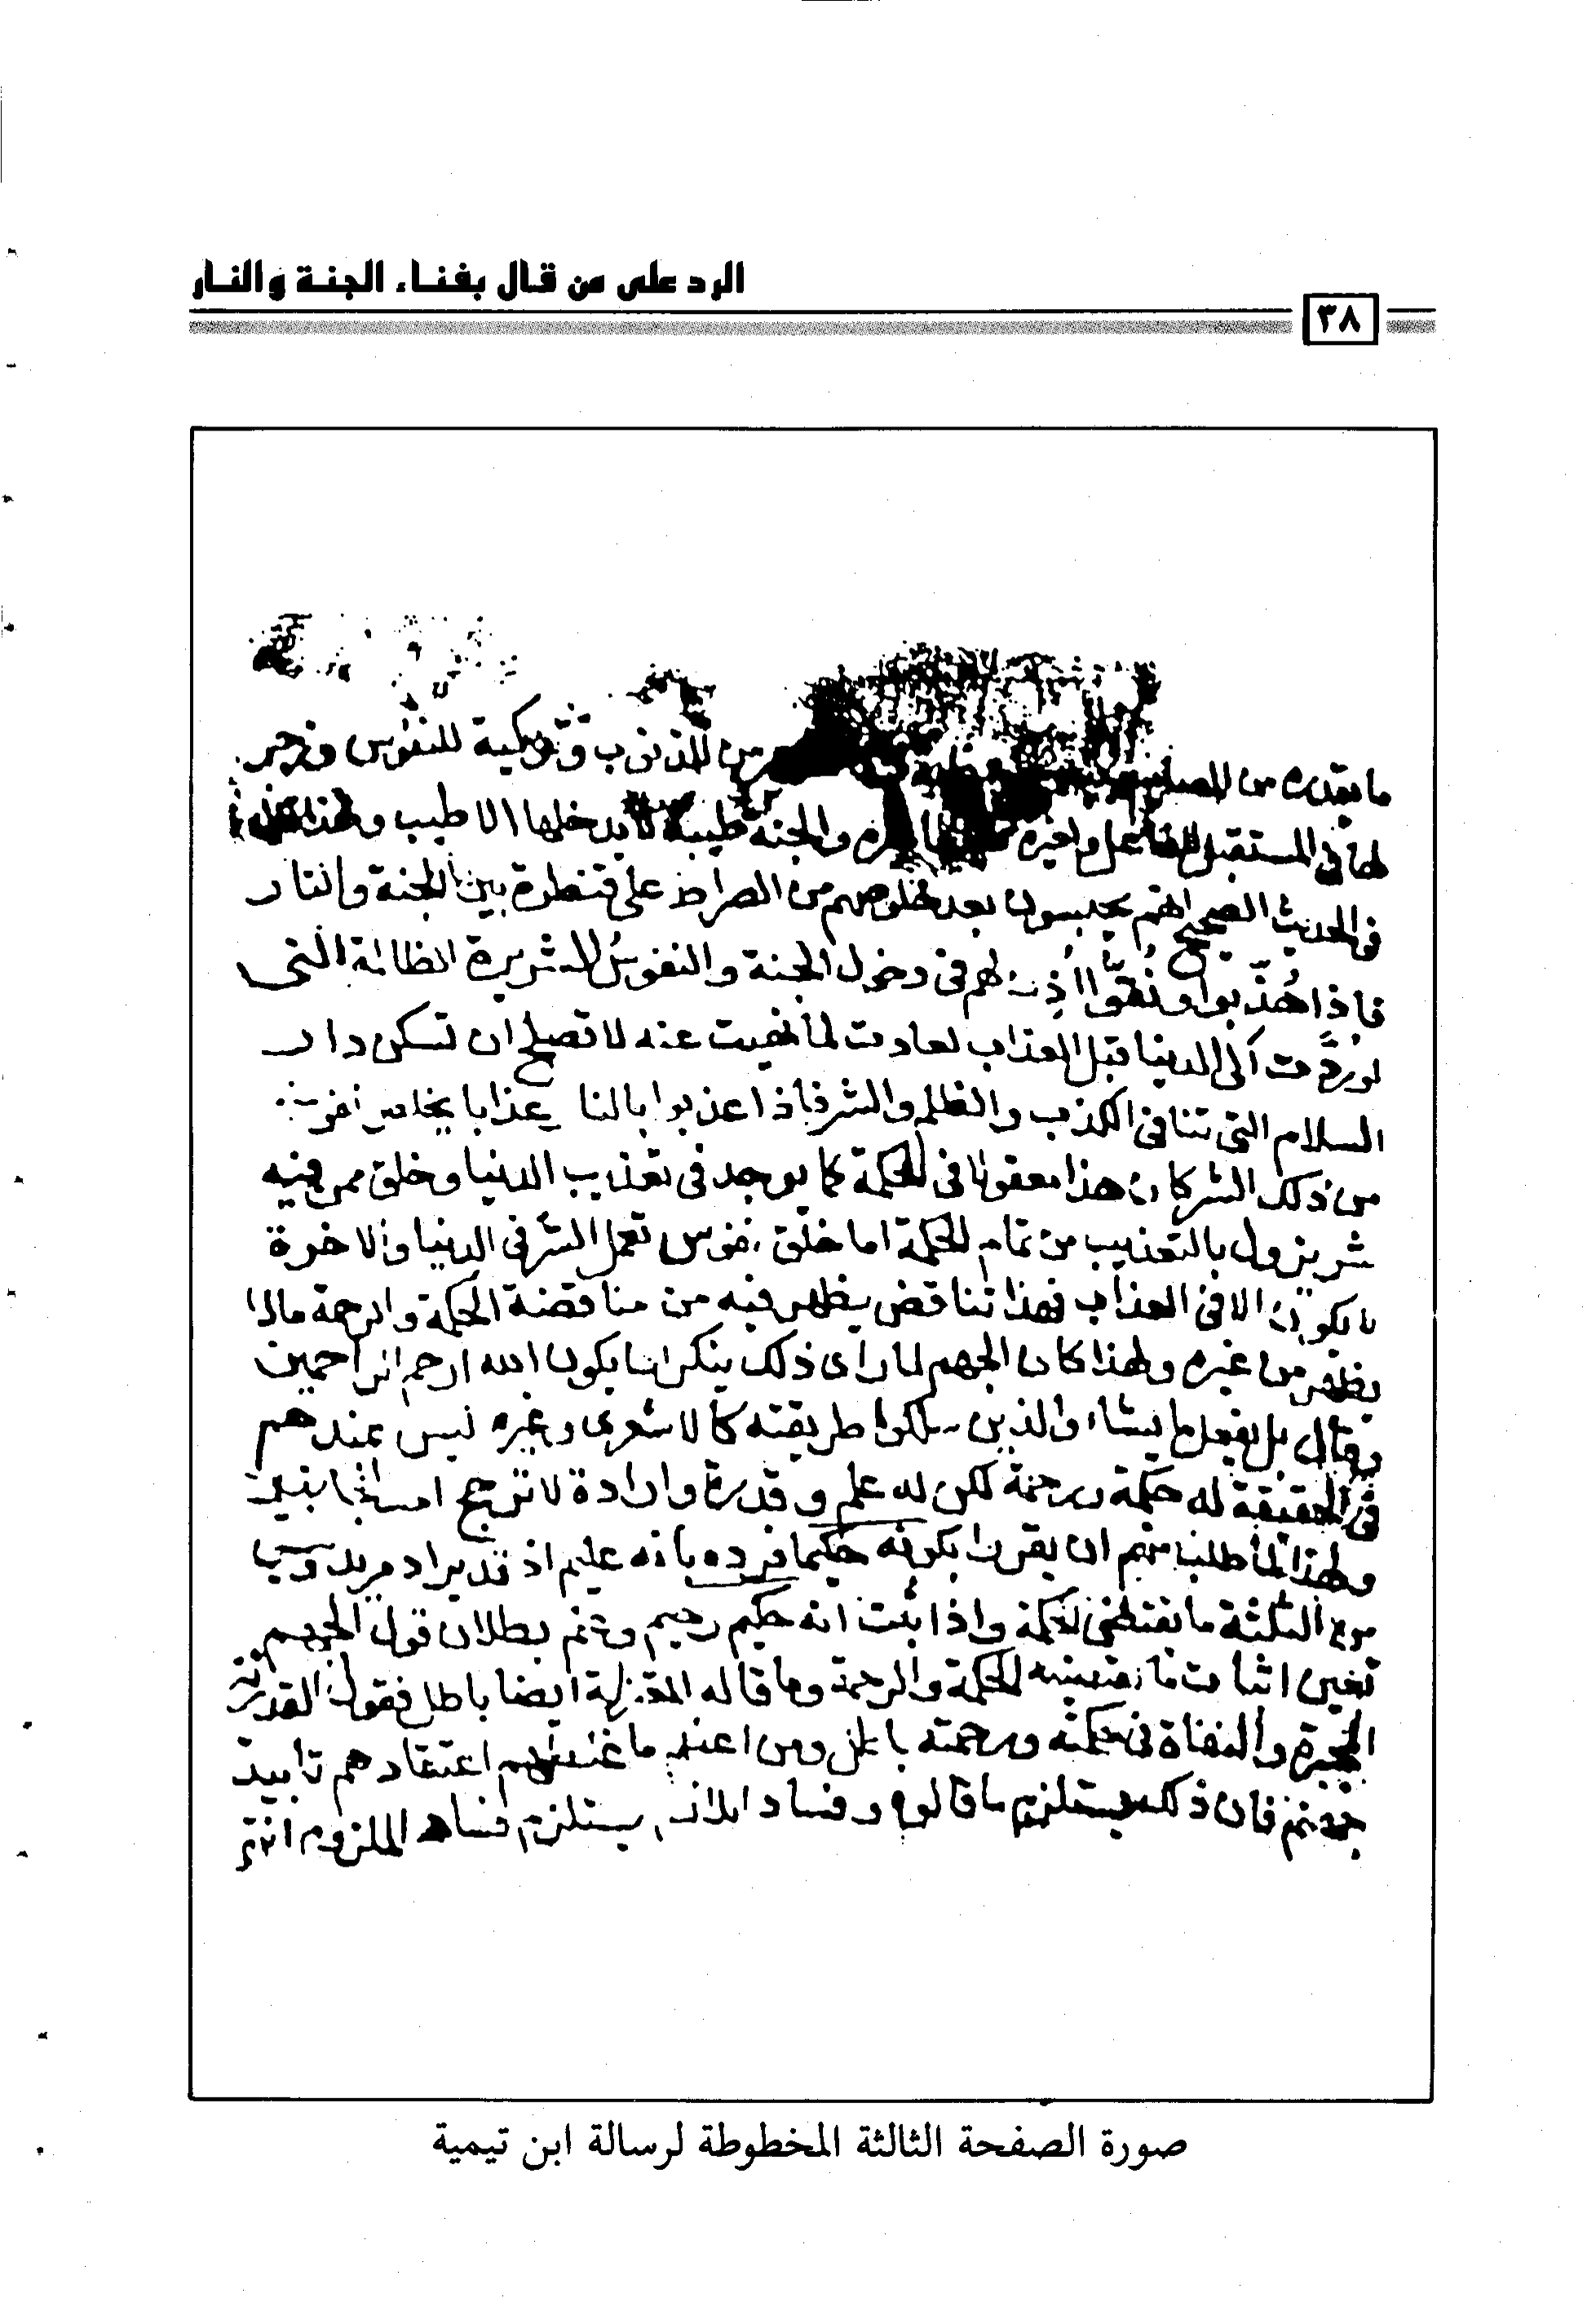 الرد على من قال بفناء الجنة والنار
٣٨
ما يقدره من من الذنوب وتزكية للنفوس وزجر
لها في المستقبل للفاعل ولغيره والجنة طيبة لا يدخلها الا طيب ولهذا
في الحديث الصحيح انهم يحبسون بعد خلوصهم من الصراط على قنطرة بين الجنة والنار
فاذا هُذّبوا ونُقّوا اُذِن لهم في دخول الجنة والنفوسُ الشريرة الظالمة التي
لو رُدَّت الى الدنيا قبل العذاب لعادت لما نهيت عنه لا تصلح ان تسكن دار
السلام التي تنافي الكذب والظلم والشر فاذا عذبوا بالنا عذابا يخلص نفوسهم
من ذلك الشر كان هذا معقولا في الحكمة كما يوجد في تعذيب الدنيا وخلق من فيه
شر يزول بالتعذيب من تمام الحكمة اما خلق نفوس تعمل الشر في الدنيا والاخرة
لا يكون الا في العذاب فهذا تناقض يظهر فيه من مناقضة الحكمة والرحمة مالا
يظهر من غيره ولهذا كان الجهم لما راى ذلك ينكر ان يكون الله ارحم الراحمين
وقال بل يفعل ما يشاء والذين سلكوا طريقته كالاشعري وغيره ليس عندهم
في الحقيقة له حكمة ورحمة لكن له علم وقدرة وارادة لا ترجح احد الجانبين
ولهذا لما طلب منهم ان يقروا بكونه حكيما فرده بانه عليم اذ قدير او مريد وليس
من الثلثة ما يقتضي الحكمة واذا ثبت انه حكيم رحيم وعلم بطلان قول الجهم
تعين اثبات ما تقتضيه الحكمة والرحمة وما قاله المعتزلة ايضا باطل فقول القدرية
المجبرة والنفاة في حكمته ورحمته باطل ومن اعظم ما غلطهم اعتقادهم تابيد
جهنم فان ذلك يستلزم ما قالوه وفساد اللازم يستلزم فساد الملزوم انتهى
صورة الصفحة الثالثة المخطوطة لرسالة ابن تيمية